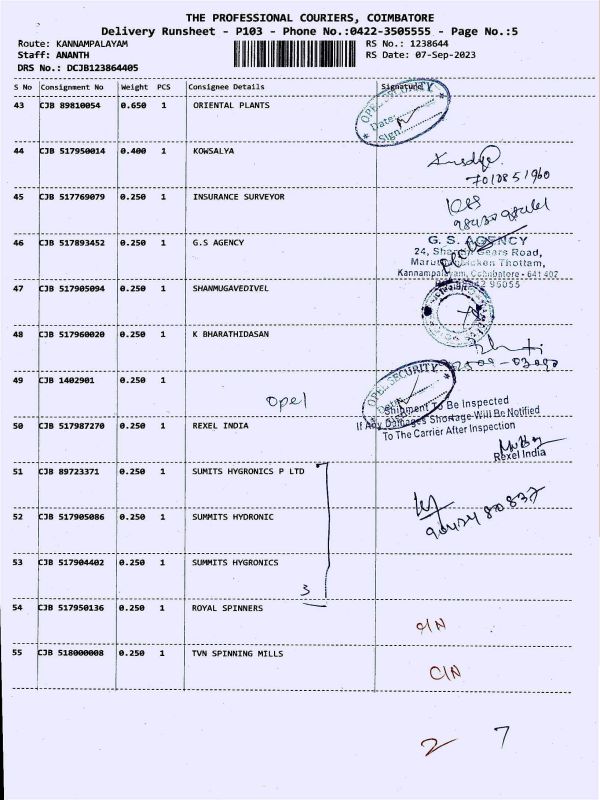 THE PROFESSIONAL COURIERS, COIMBATORE
Delivery Runsheet - P103 - Phone No.:0422-3505555 - Page No.:5
Route: KANNAMPALAYAM RS No.: 1238644
Staff: ANANTH RS Date: 07-Sep-2023
DRS No.: DCJB123864405
S No Consignment No Weight PCS Consignee Details Signature
43 CJB 89810054 0.650 1 ORIENTAL PLANTS
OPEL SECURITY
Date:
Sign:
44 CJB 517950014 0.400 1 KOWSALYA
45 CJB 517769079 0.250 1 INSURANCE SURVEYOR
46 CJB 517893452 0.250 1 G.S AGENCY
G. S. AGENCY
24, Gears Road,
Thottam,
Coimbatore - 641 402
47 CJB 517905094 0.250 1 SHANMUGAVEDIVEL
48 CJB 517960020 0.250 1 K BHARATHIDASAN
49 CJB 1402901 0.250 1
Opel
OPEL SECURITY
50 CJB 517987270 0.250 1 REXEL INDIA
Shipment To Be Inspected
If Any Damages Shortage Will Be Notified
To The Carrier After Inspection
Rexel India
51 CJB 89723371 0.250 1 SUMITS HYGRONICS P LTD
52 CJB 517905086 0.250 1 SUMMITS HYDRONIC
53 CJB 517904402 0.250 1 SUMMITS HYGRONICS
3
54 CJB 517950136 0.250 1 ROYAL SPINNERS
C/N
55 CJB 518000008 0.250 1 TVN SPINNING MILLS
C/N
2 7